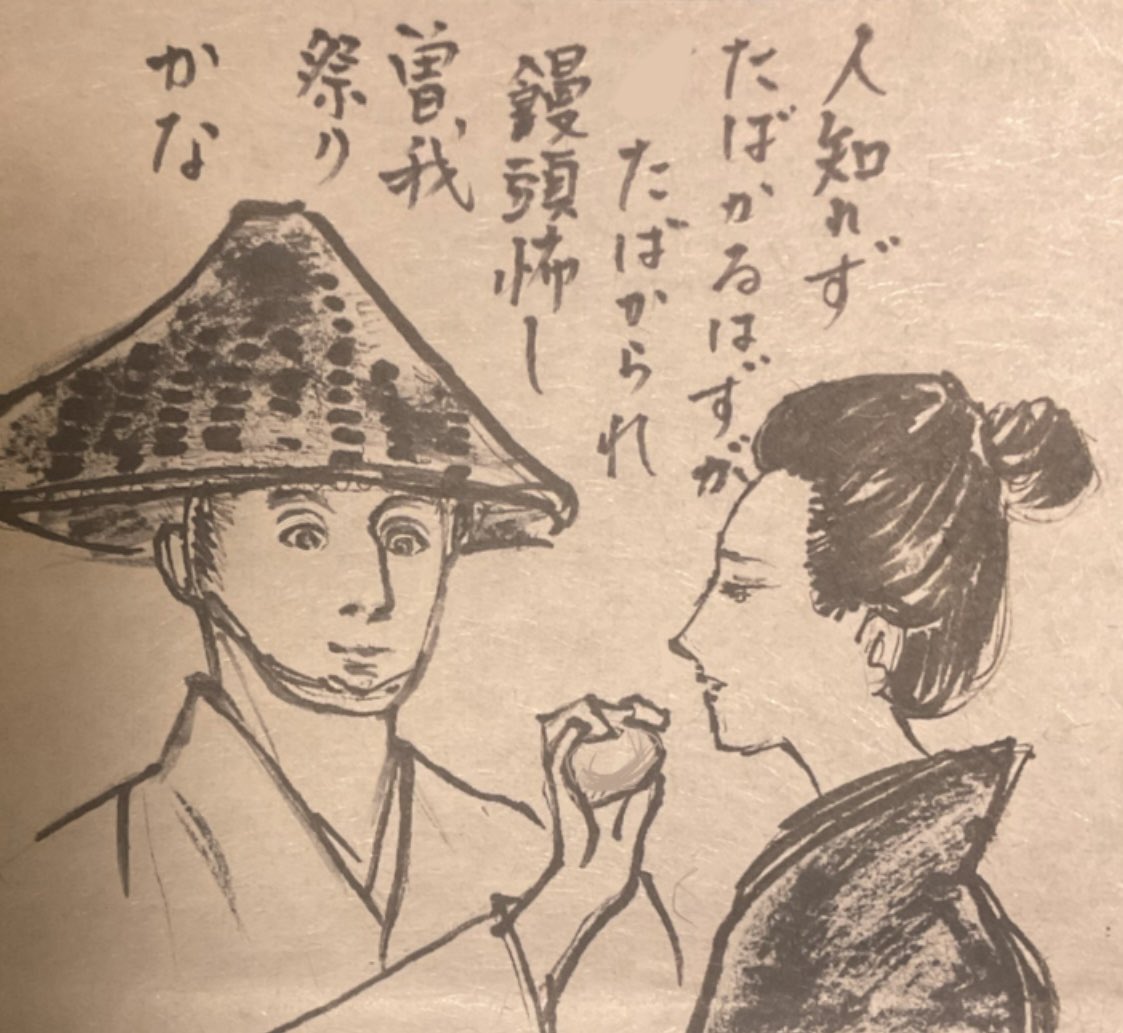 人知れず
たばかるはずが
たばかられ
饅頭怖し
曽、我
祭り
かな